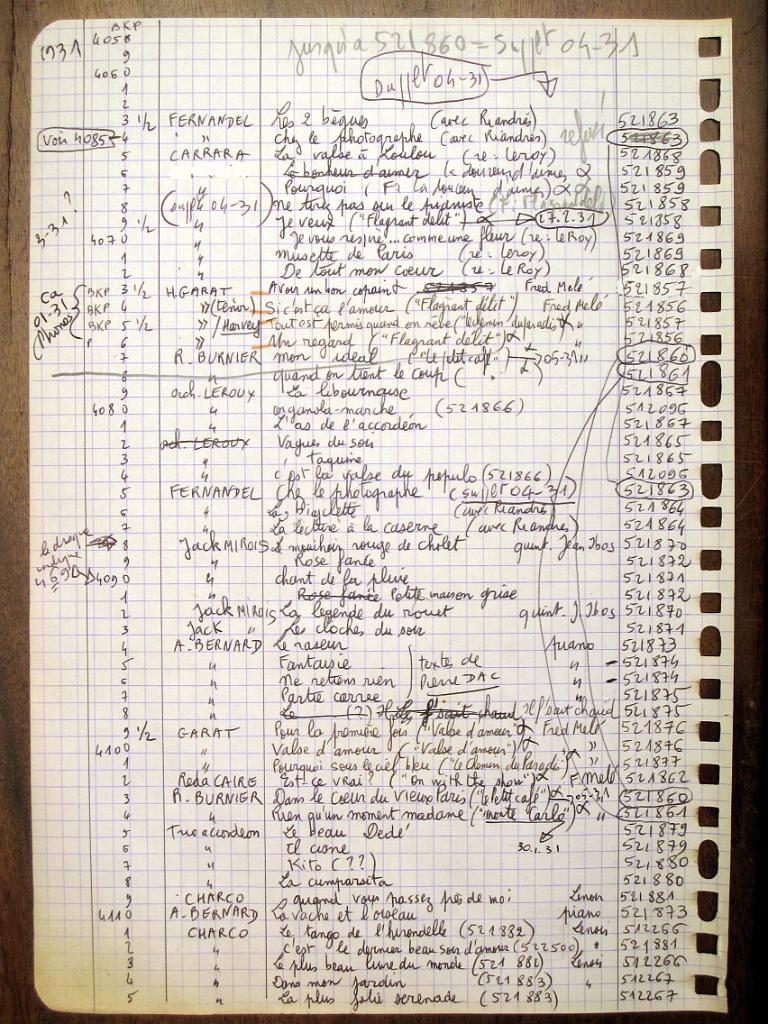 1931 BKP 4058 jusqu'à 521860 = Supplt 04-31
9
4060 Supplt 04-31
1
2
3 1/2 FERNANDEL Les 2 bègues (avec Riandrès) 521863
voir 4085 4 " chez le photographe (avec Riandrès) refusé 521863
5 CARRARA La valse à Loulou (re: Leroy) 521868
6 Le bonheur d'aimer la douceur d'aimer α 521859
7 " Pourquoi (F: la douceur d'aimer) α 521859
8 (Supplt 04-31) " ne tirez pas sur le pianiste 521858
3-31? 9 1/2 " Je veux ("Flagrant délit") α 27.2.31 521858
4070 " Je vous respire... comme une fleur (re: LeRoy) 521869
1 " musette de Paris (re: Leroy) 521869
2 " De tout mon coeur (re: LeRoy) 521868
ca 01-31 BKP 3 1/2 H. GARAT Avoir un bon copain 521857 Fred Melé 521857
BKP 4 " (ténor) Si c'est ça l'amour ("Flagrant délit") Fred Melé 521856
BKP 5 1/2 " / Harvey Tout est permis quand on rêve ("le chemin du paradis") α " 521857
P 6 " Un regard ("Flagrant délit") α " 521856
7 R. BURNIER mon idéal ("le petit café") 05-31 " 521860
8 " quand on tient le coup ( 521861
9 orch. LEROUX La libournaise 521867
4080 " organola-marche (521866) 512096
1 " L'as de l'accordéon 521867
2 orch. LEROUX Vagues du soir 521865
3 " Taquine 521865
4 " c'est la valse du populo (521866) 512096
5 FERNANDEL Chez le photographe (supplt 04-31) 521863
6 " La bicyclette (avec Riandrès) 521864
7 " La lecture à la caserne (avec Riandrès) 521864
8 Jack MIROIS Le mouchoir rouge de cholet quint. Jean Ibos 521870
9 " Rose fanée 521872
indique 4090 " chant de la pluie 521871
1 " Rose fanée Petite maison grise 521872
2 Jack MIROIS La légende du rouet quint. J. Ibos 521870
3 Jack " Les cloches du soir 521871
4 A. BERNARD Le raseur piano 521873
5 " Fantaisie textes de " 521874
6 " Ne retiens rien Pierre DAC " 521874
7 " Partie carrée 521875
8 " Le (?) Il f'sait chaud 521875
9 1/2 GARAT Pour la première fois ("Valse d'amour") Fred Melé 521876
4100 " Valse d'amour ("Valse d'amour") α " 521876
1 " Pourquoi sous le ciel bleu ("le Chemin du Paradis") " 521877
2 Reda CAIRE Est-ce vrai? ("On with the show") α F. Melé 521862
3 R. BURNIER Dans le coeur du vieux Paris ("le Petit café") α 05-31 521860
4 " Rien qu'un moment madame ("monte Carlo") α " 521861
5 Trio accordéon Le beau Dédé 521879
6 " El cisne 30.1.31 521879
7 " Kito (??) 521880
8 " La cumparsita 521880
9 CHARCO quand vous passez près de moi Lenoir 521881
4110 A. BERNARD La vache et l'oiseau piano 521873
1 CHARCO Le tango de l'hirondelle (521882) Lenoir 512266
2 " c'est le dernier beau soir d'amour (522500) " 521881
3 " Le plus beau livre du monde (521882) Lenoir 512266
4 " Dans mon jardin (521883) " 512267
5 " La plus jolie serenade (521883) 512267